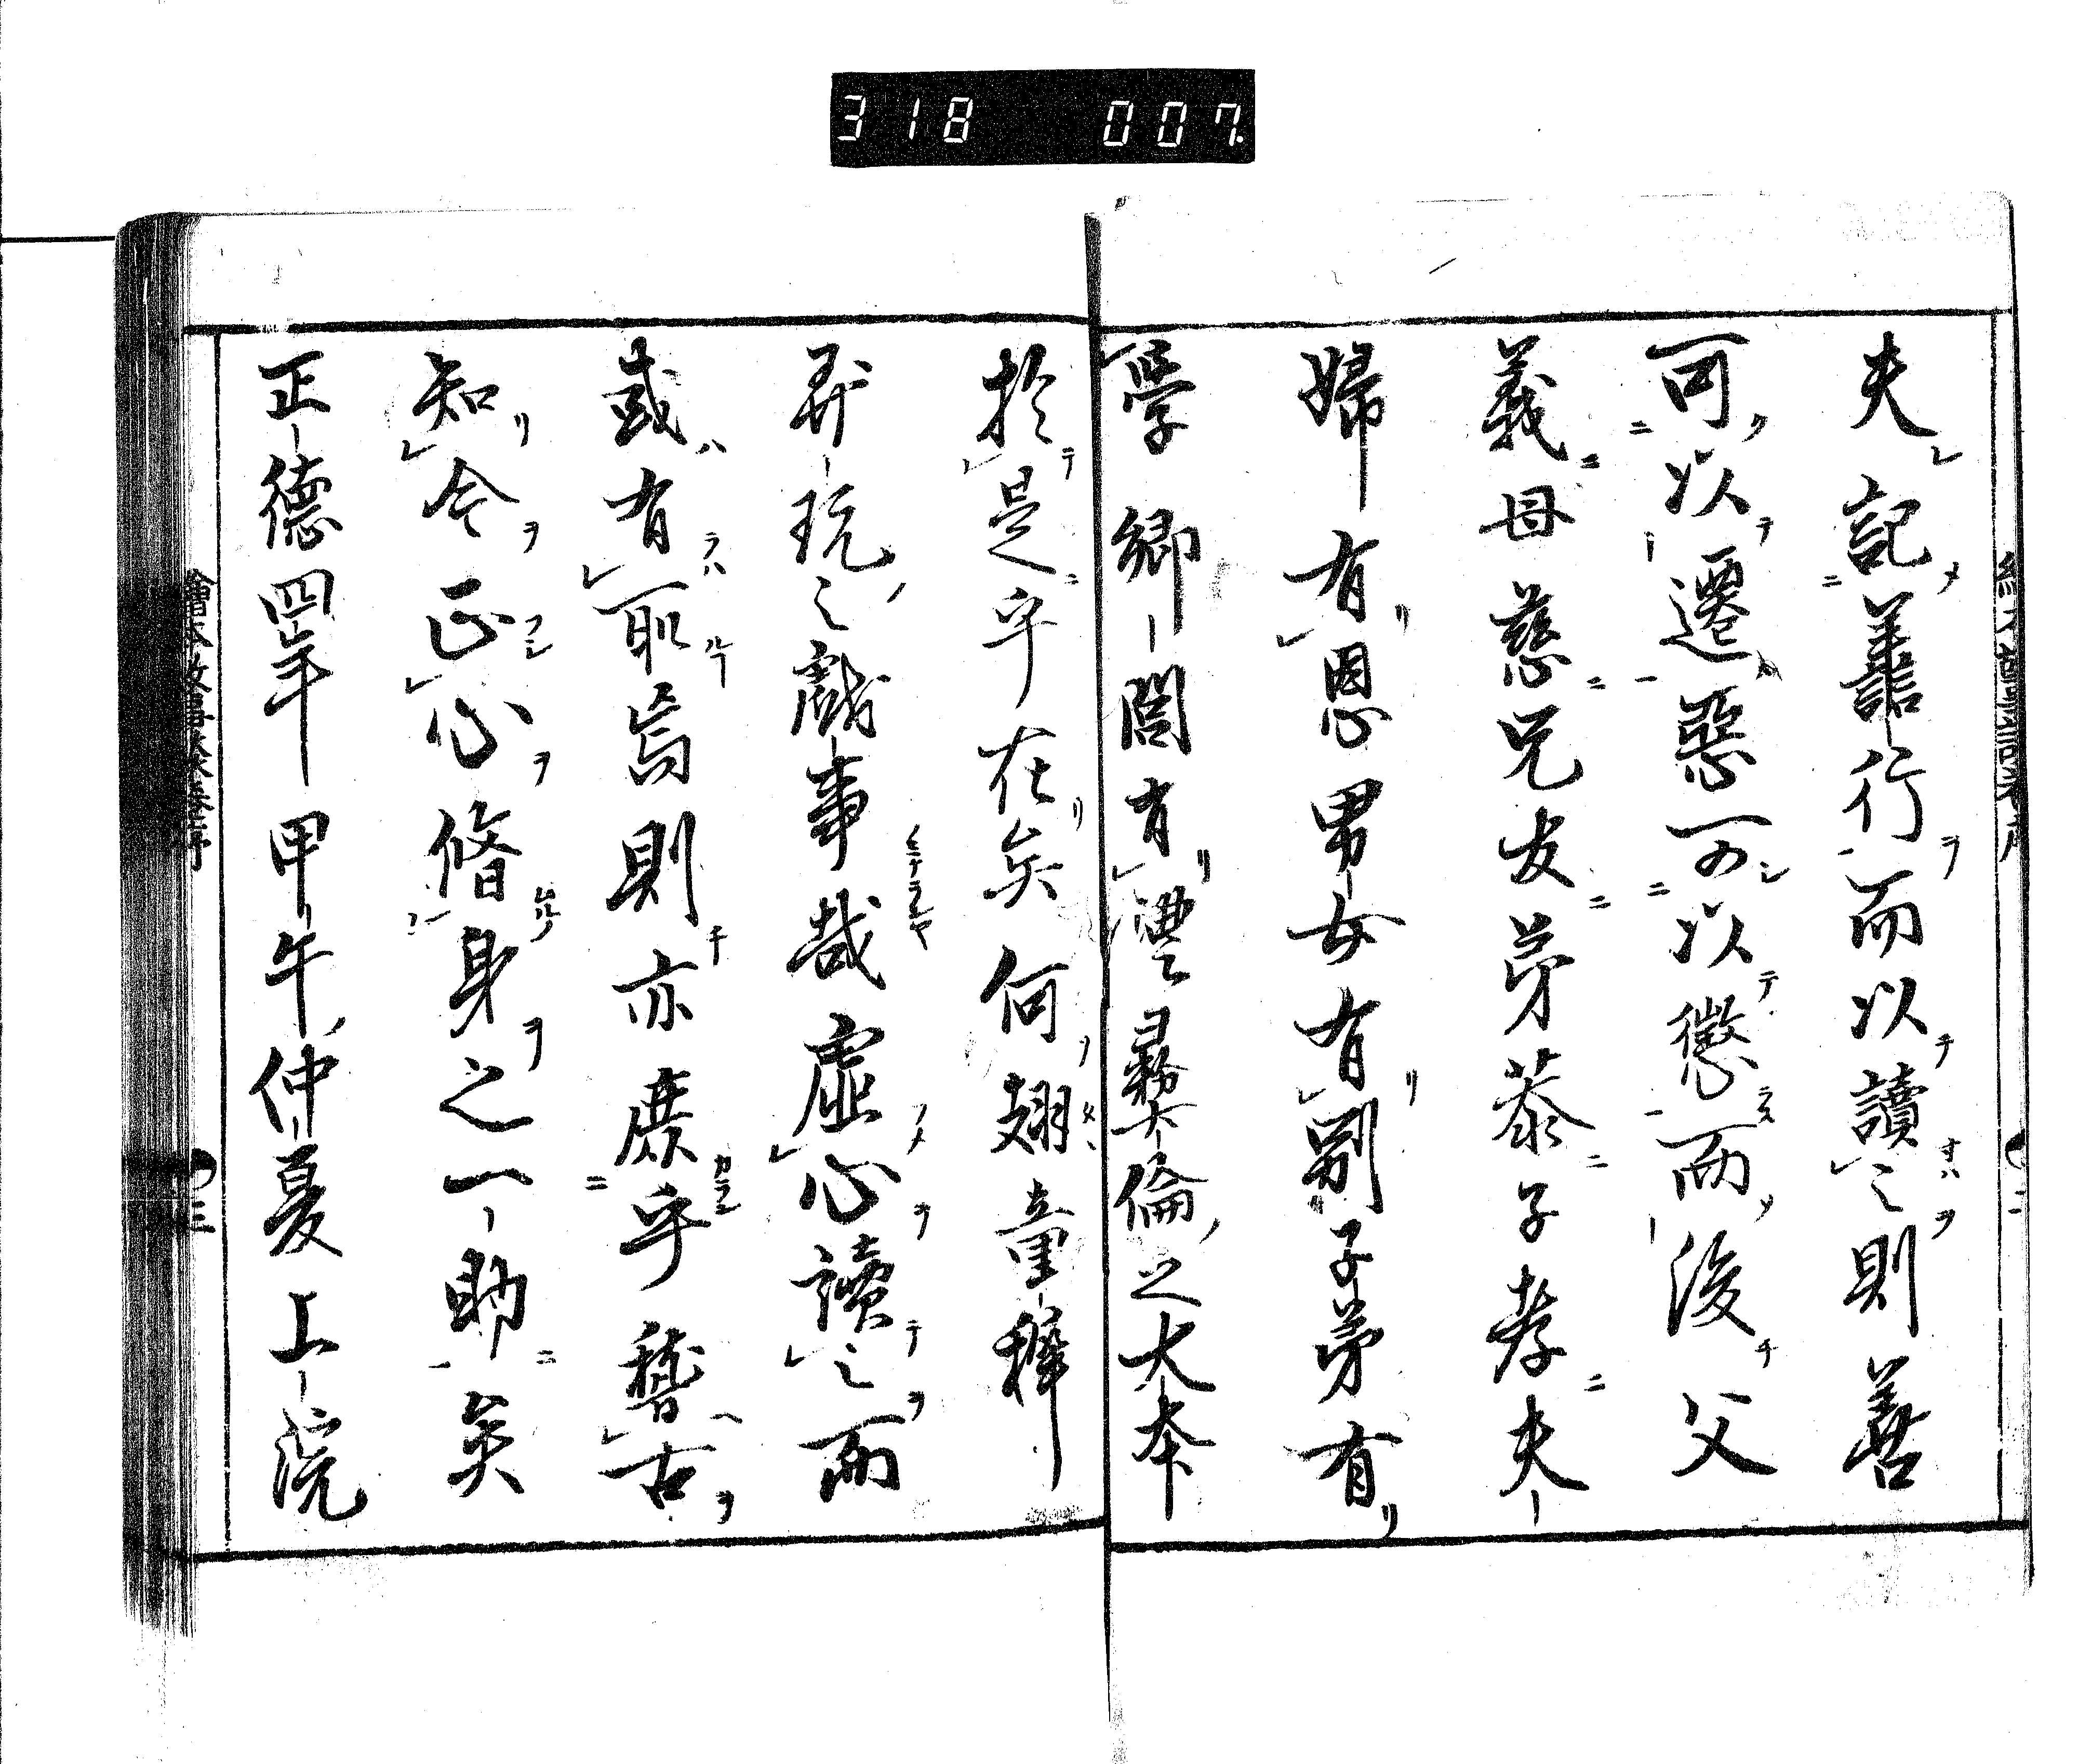 318 007
夫記譱行而以讀之則善
可以遷惡可以懲而後父
義母慈兄友弟恭子孝夫
婦有恩男女有別子弟有
學鄉閭有禮彝倫之大本
於是乎在矣何翅童穉
弄玩之戲事哉虛心讀之而
或有取焉則亦庶乎稽古
知今正心脩身之一助矣
正德四年甲午仲夏上浣